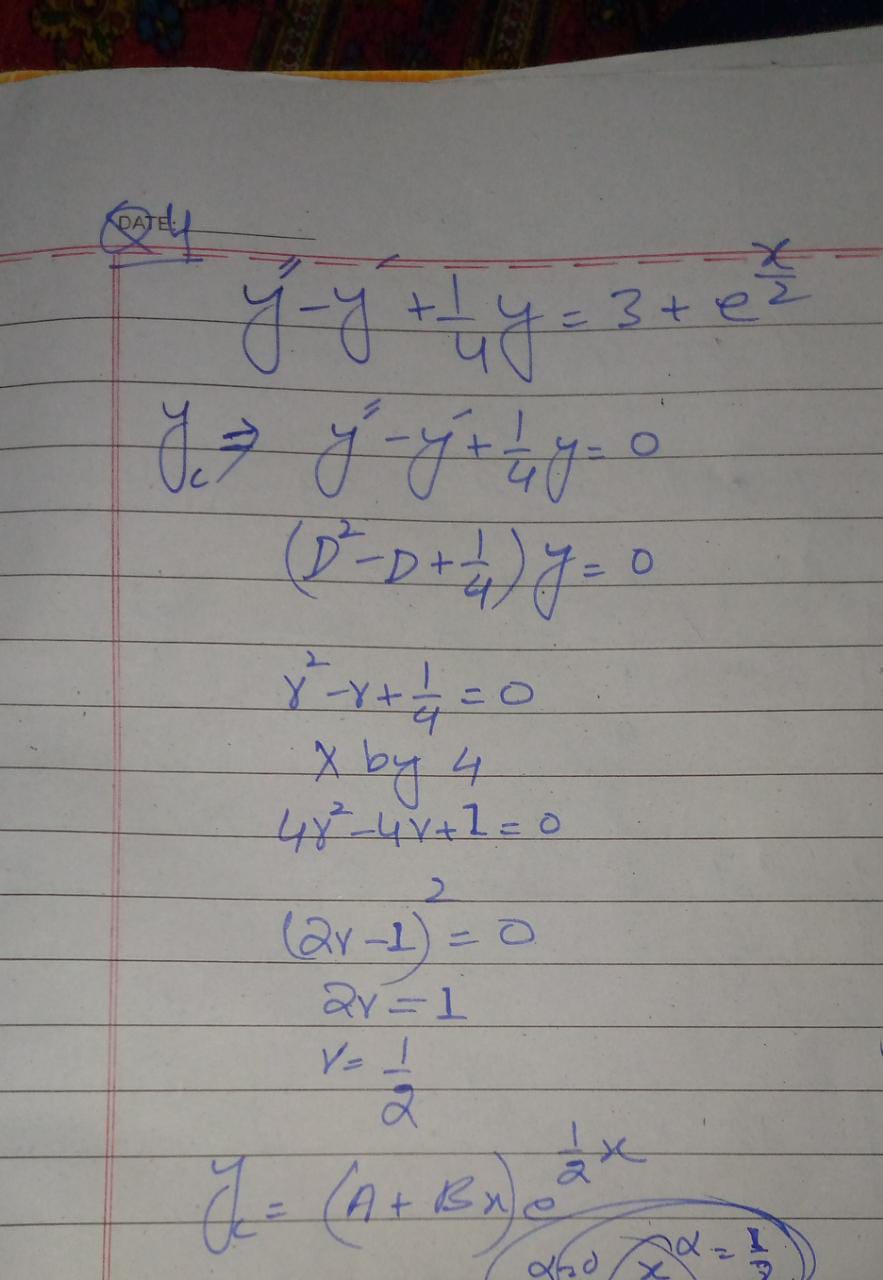 DATE:
Q4
y'' - y' + 1/4 y = 3 + e^(x/2)
y_c ⇒ y'' - y' + 1/4 y = 0
(D² - D + 1/4) y = 0
r² - r + 1/4 = 0
X by 4
4r² - 4r + 1 = 0
(2r - 1)² = 0
2r = 1
r = 1/2
y_c = (A + Bx) e^(1/2 x)
x α =